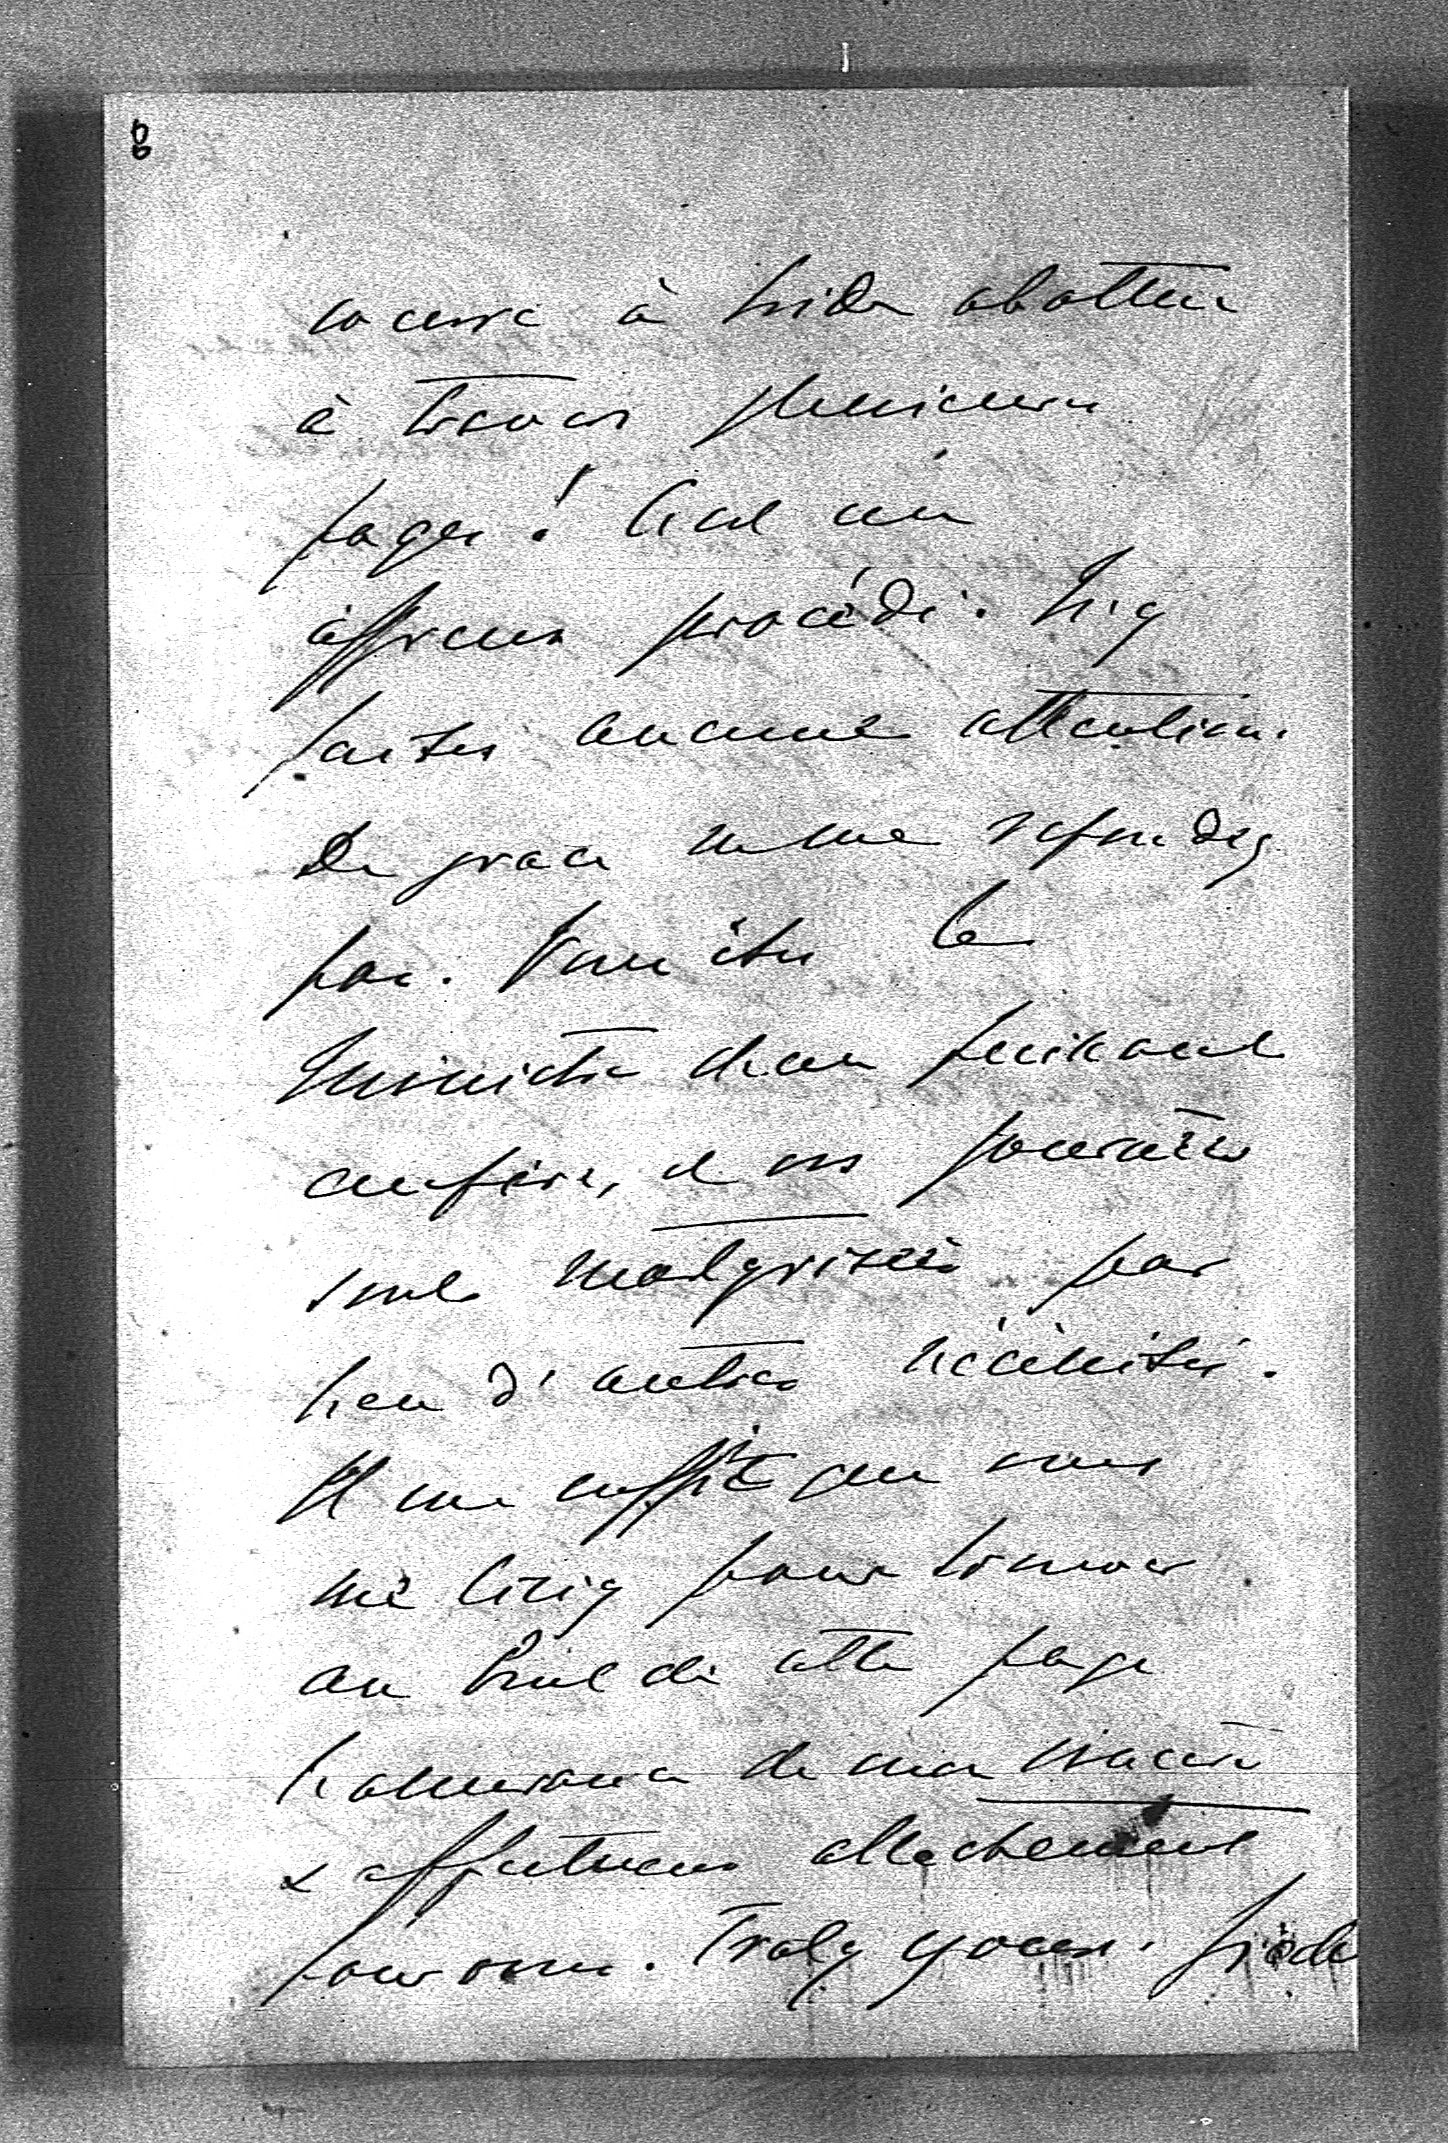 8
course à bride abattue
à travers plusieurs
pages! C'est un
affreux procédé. N'y
faites aucune attention.
De grace ne me répondez
pas. Vous êtes le
Ministre d'un puissant
empire, et vos journées
sont maîtrisées par
bien d'autres nécéssités.
Il me suffit que vous
me lisiez pour trouver
au bout de cette page
l'assurance de mon sincère
& affectueux attachement
pour vous. Truly yours.